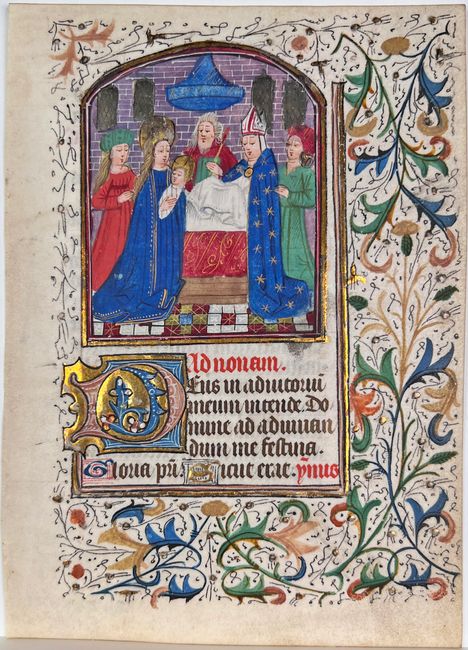 Ad nonam.
Deus in adiutoriū
meum intende. Do
mine ad adiuuan
dum me festina.
Gloria pri̅ Sicut erat. ynus